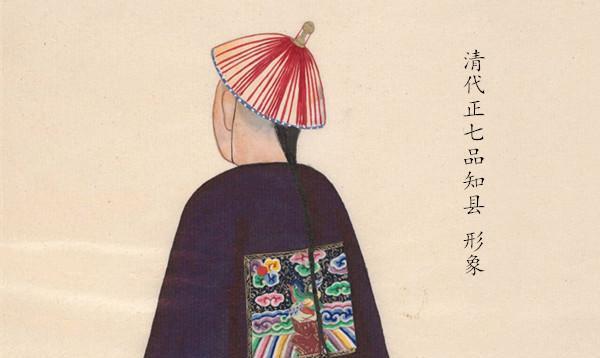 清代正七品知县 形象